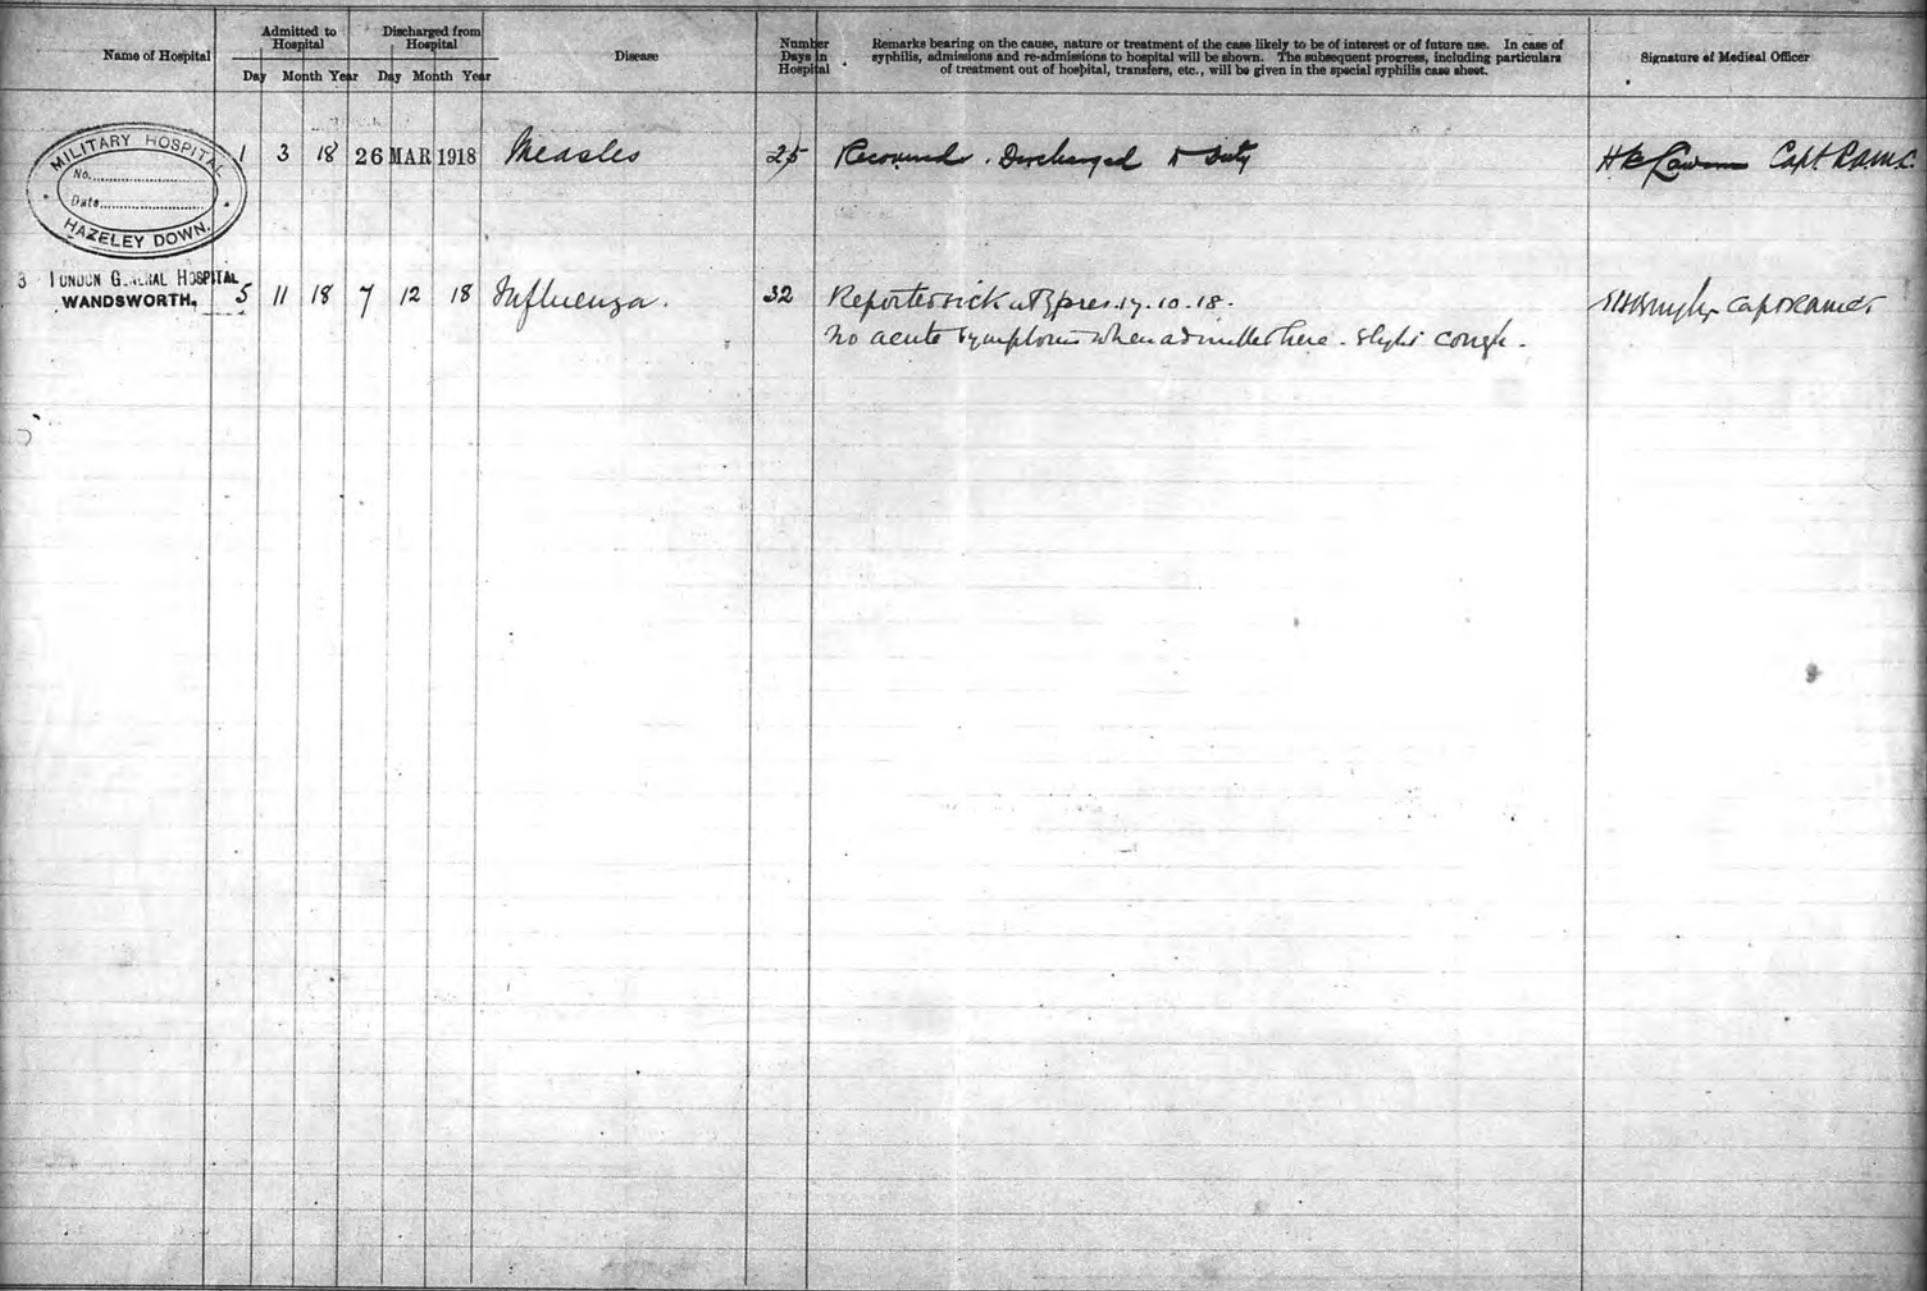 Name of Hospital
Admitted to
Hospital
Day Month Year
Discharged from
Hospital
Day Month Year
Disease
Number
Days in
Hospital
Remarks bearing on the cause, nature or treatment of the case likely to be of interest or of future use. In case of
syphilis, admissions and re-admissions to hospital will be shown. The subsequent progress, including particulars
of treatment out of hospital, transfers, etc., will be given in the special syphilis case sheet.
Signature of Medical Officer
MILITARY HOSPITAL
No.
Date
HAZELEY DOWN.
1 3 18 26 MAR 1918 Measles 25 Recovered. Discharged to Duty Capt R.A.M.C.
3 LONDON GENERAL HOSPITAL
WANDSWORTH, 5 11 18 7 12 18 Influenza. 32 Reported sick at Ypres. 17.10.18.
No acute symptoms when admitted here. Slight cough.